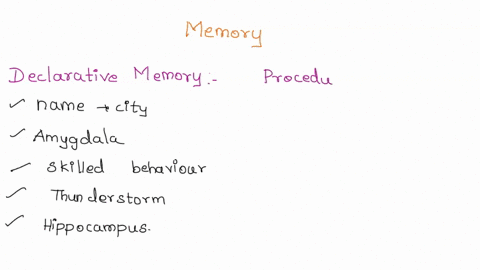 Memory
Declarative Memory:- Procedu
✓ name → city
✓ Amygdala
✓ skilled behaviour
✓ Thunderstorm
✓ Hippocampus.